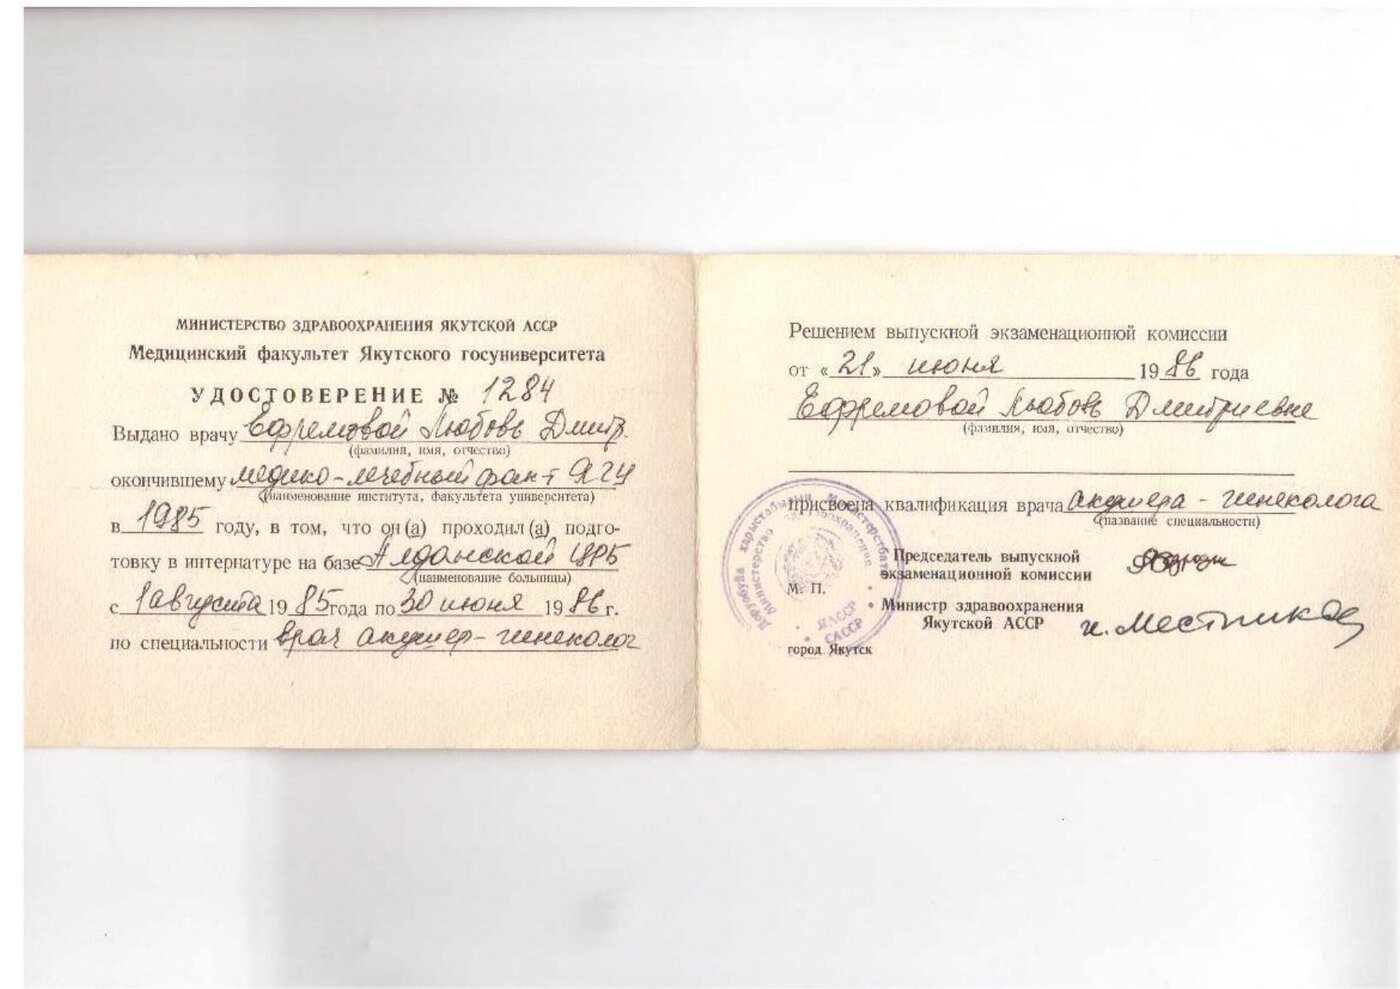 МИНИСТЕРСТВО ЗДРАВООХРАНЕНИЯ ЯКУТСКОЙ АССР
Медицинский факультет Якутского госуниверситета
УДОСТОВЕРЕНИЕ № 1284
Выдано врачу Ефремовой Любовь Дмитр.
(фамилия, имя, отчество)
окончившему медико-лечебный фак-т ЯГУ
(наименование института, факультета университета)
в 1985 году, в том, что он (а) проходил (а) подго-
товку в интернатуре на базе Алданской ЦРБ
(наименование больницы)
с 1 августа 1985 года по 30 июня 1986 г.
по специальности врач акушер-гинеколог
Решением выпускной экзаменационной комиссии
от «21» июня 1986 года
Ефремовой Любовь Дмитриевне
(фамилия, имя, отчество)
присвоена квалификация врача акушера-гинеколога
(название специальности)
Председатель выпускной
экзаменационной комиссии
М. П.
Министр здравоохранения
Якутской АССР
город Якутск
Министерство здравоохранения
ЯАССР
САССР